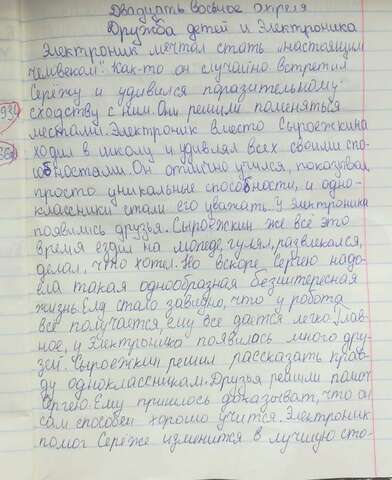 Двадцать восьмое апреля
Дружба детей и Электроника
Электроник мечтал стать „настоящим
человеком". Как-то он случайно встретил
Серёжу и удивился поразительному
сходству с ним. Они решили поменяться
местами. Электроник вместо Сыроежкина
ходил в школу и удивлял всех своими спо-
собностами. Он отлично учился, показывал
просто уникальные способности, и одно-
классники стали его уважать. У Электроника
появились друзья. Сыроежкин же всё это
время ездил на мопеде, гулял, развлекался,
делал, что хотел. Но вскоре Сергею надо-
ела такая однообразная безинтересная
жизнь. Ему стало завидно, что у робота
всё получается, ему всё даётся легко. Глав-
ное, у Электроника появилось много дру-
зей. Сыроежкин решил рассказать прав-
ду одноклассникам. Друзья решили помоч
Сергею. Ему пришлось доказывать, что он
сам способен хорошо учится. Электроник
помог Серёже изменится в лучшую сто-